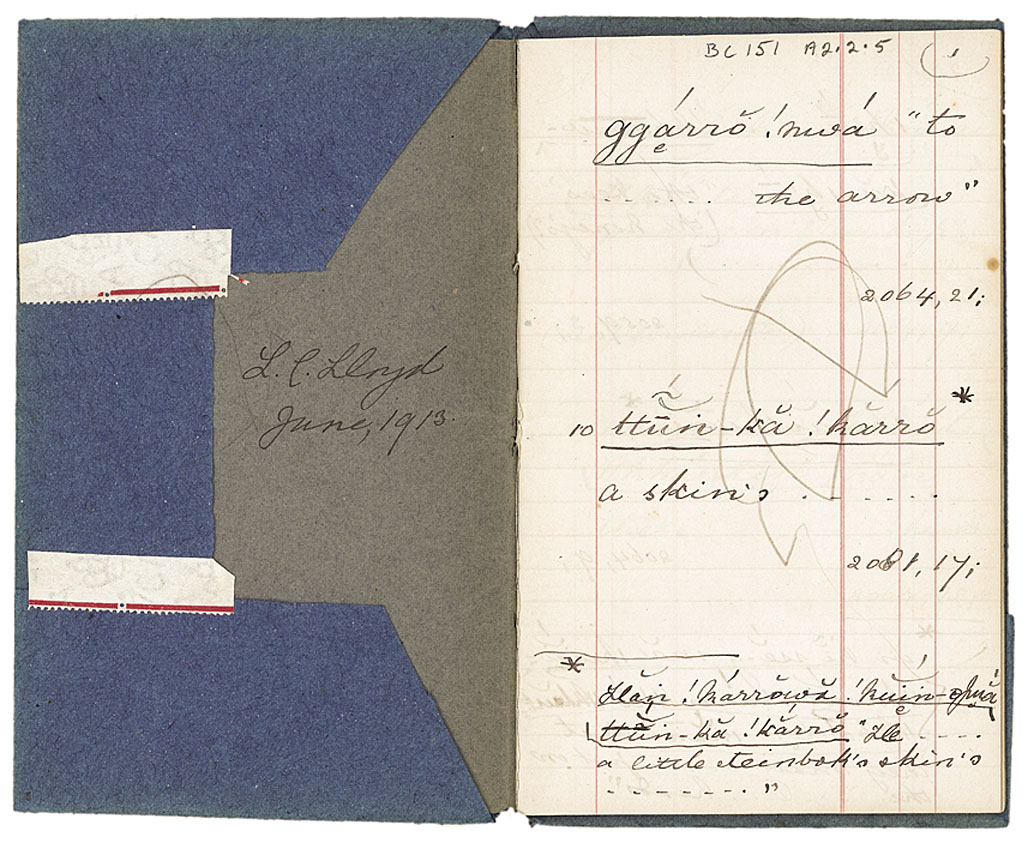 L. C. Lloyd
June, 1913.
BC 151 A2.2.5
ggárrŏ !nwá "to
..... the arrow"
2064, 21;
10 ttŭ́n-kă !kărrŏ *
a skin's . - . . . .
2081, 17;
*
!kárrŏwă !kŭín-
ttŭ́n-kă !kárrŏ "He ----
a little steinbok's skin's
- - - - - - - "